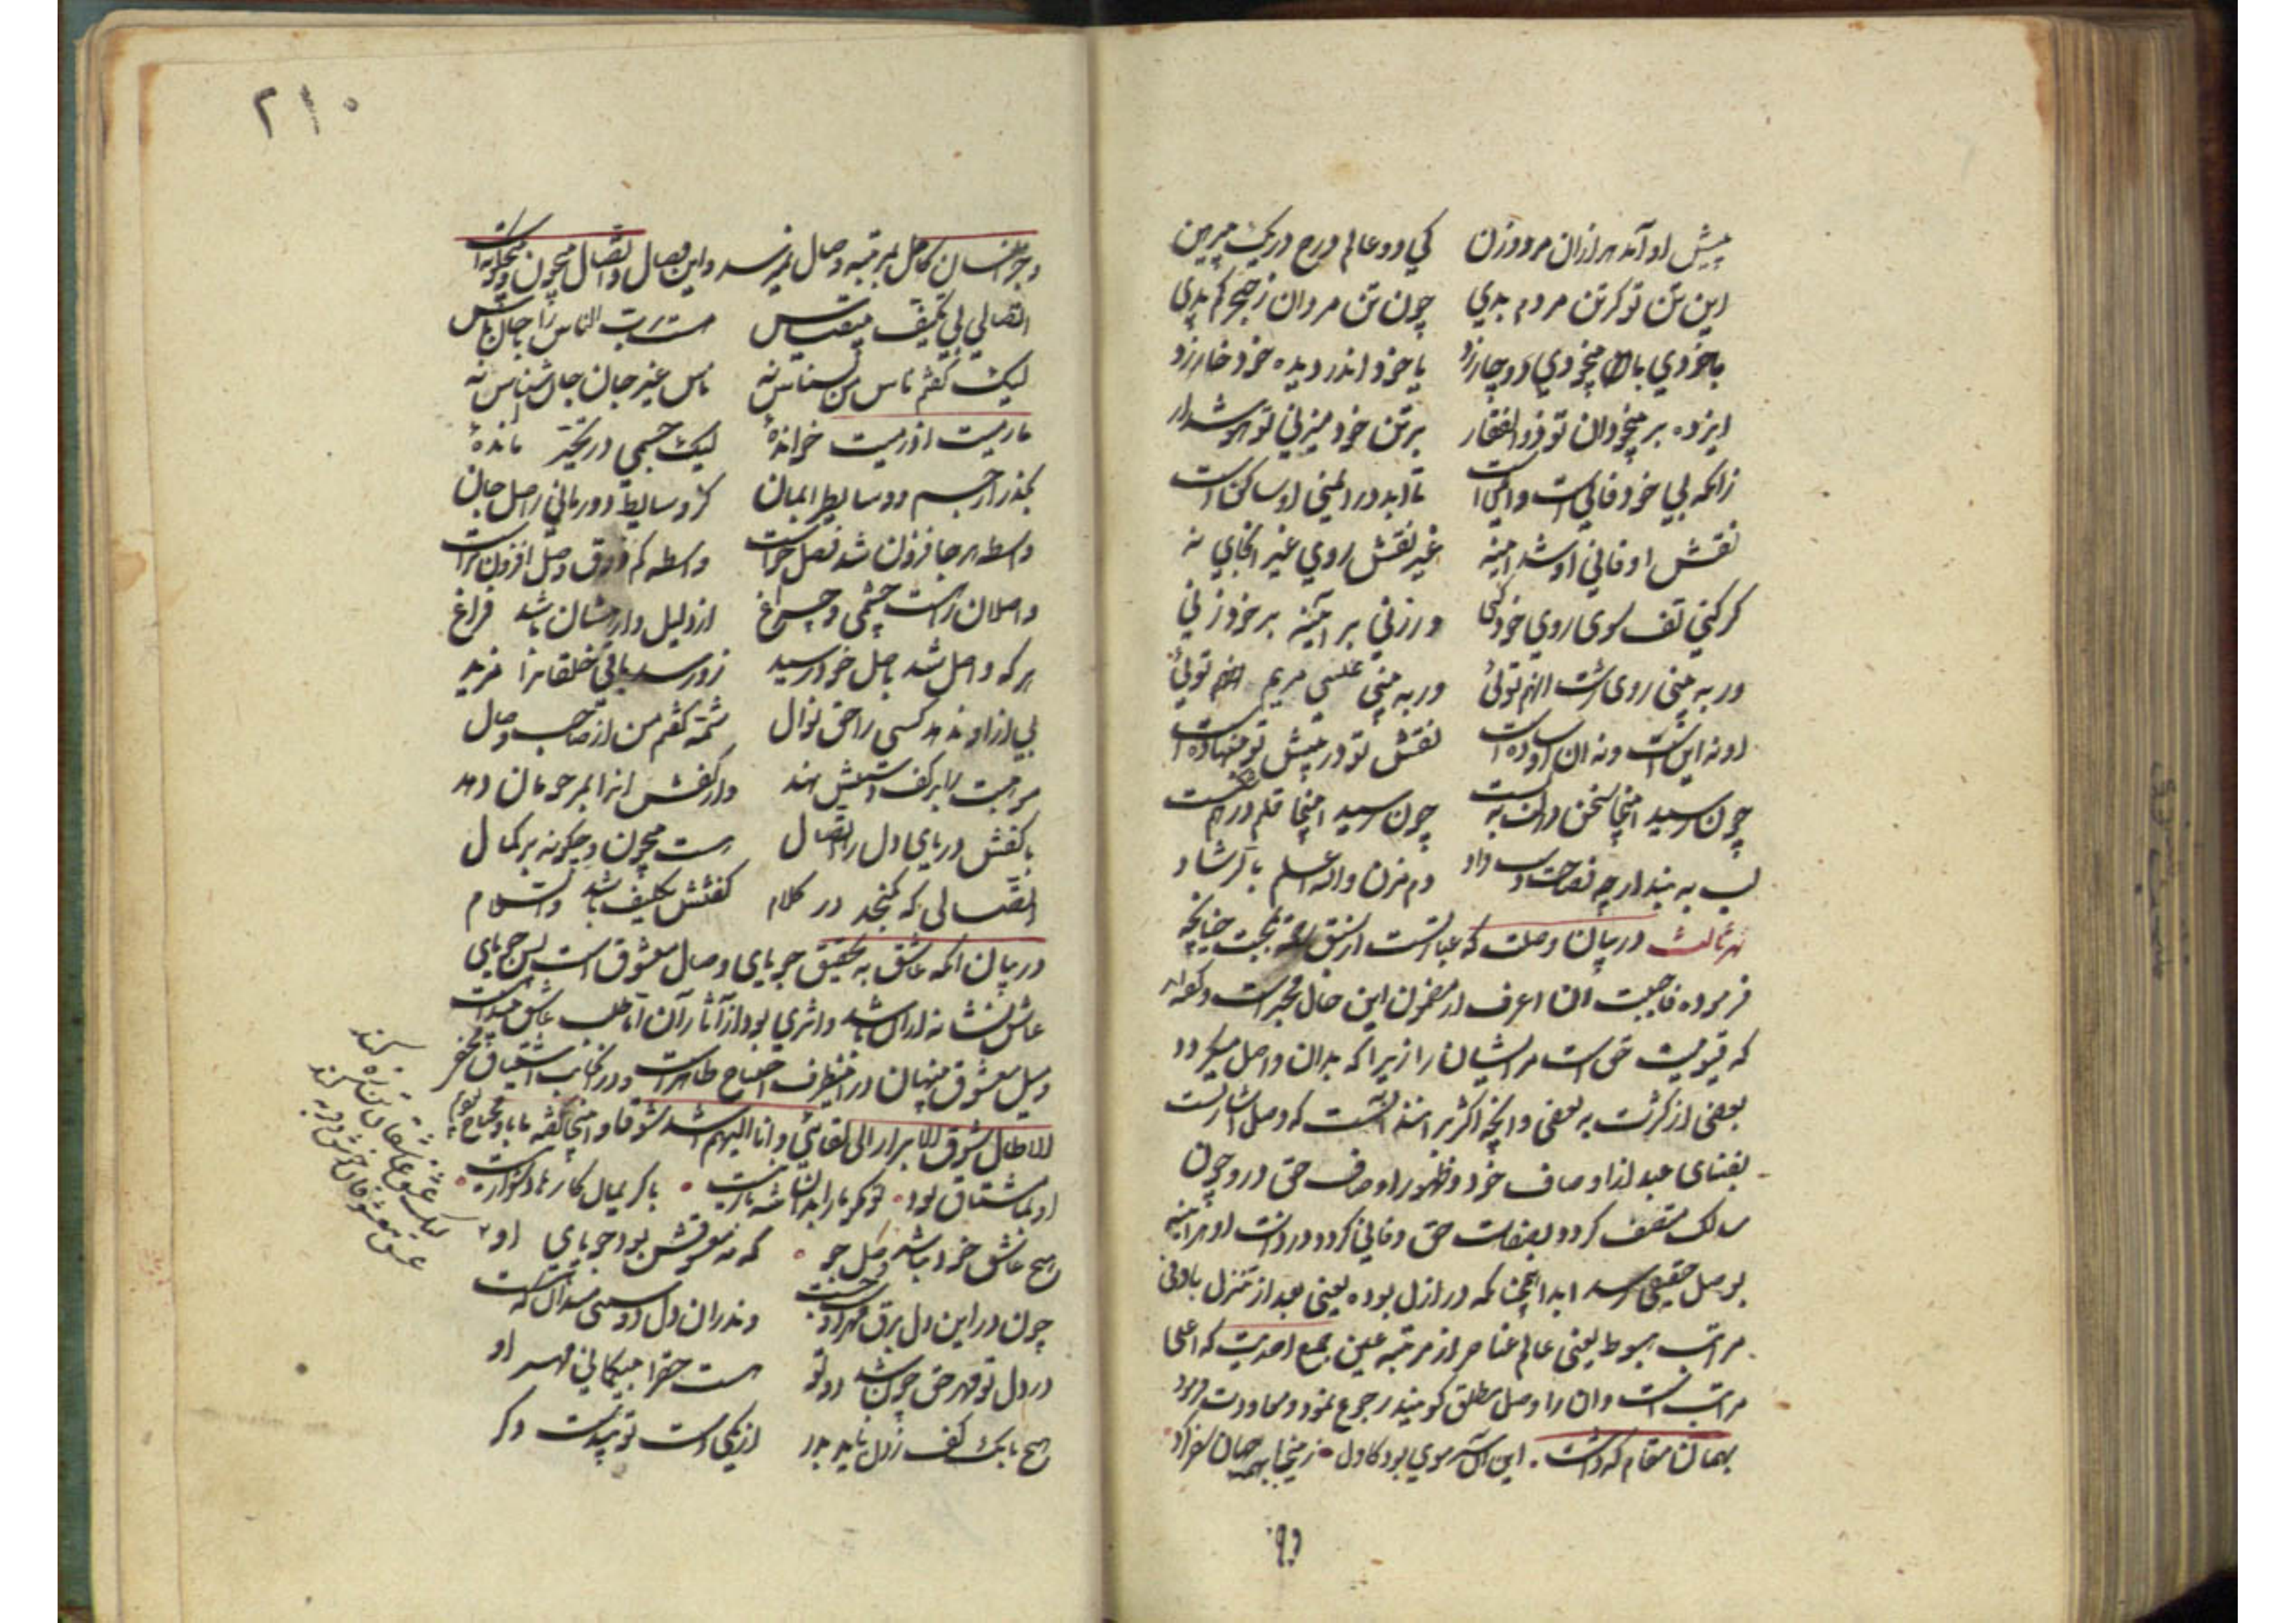 پیش او آمد هزاران مرد و زن کی دو عالم درج در یک پیرهن
این تن تو گر تن مردم بدی چون تن مردان ز خنجر کم بدی
با خودی با بیخودی دوچار زد با خود اندر دیده خود خار زد
ای زده بر بیخودان تو ذوالفقار بر تن خود میزنی تو هوشدار
زانکه بی خود فانی است و ایمن است تا ابد در ایمنی او ساکن است
نقش او فانی و او شد اینه غیر نقش روی غیر انجای نه
گر کنی تف سوی روی خود کنی ور زنی بر آینه بر خود زنی
ور به بینی روی زشت انهم توئی ور به بینی عیسی مریم توئی
او نه این است و نه ان او ساده است نقش تو در پیش تو بنهاده است
چون رسید اینجا سخن لب در به بست چون رسید اینجا قلم درهم شکست
لب به بند ار چه فصاحت دست داد دم مزن والله اعلم بالرشاد
نهر ثالث در بیان وصلت که عبارتست از سبق رحمة بمحبت چنانچه
فرموده فاحببت ان اعرف از مضمون این حال مخبر است و گفته‌اند
که قیومیت حق است مر ایشان را زیرا که بدان واصل میگردد
بعضی از کثرت به بعضی و انچه اکثر برانند آنست که وصل اشارتست
بفنای عبد از اوصاف خود و ظهور اوصاف حق درو چون
سالک متصف گردد بصفات حق و فانی گردد در ذات او هر اینه
بوصل حقیقی رسد ابدا همچنانکه در ازل بوده یعنی بعد از تنزل بادنی
مراتب هبوط یعنی عالم عناصر از مرتبه عین جمع احدیت که اعلی
مراتب است و ان را وصل مطلق گویند رجوع نمود و معاودت فرمود
بهمان مقام که داشت . این آن سر موی بود کاول زینجا بهمه جهان سفر کرد
۲۱۰
و جز انسان کامل بمرتبه وصال نمیرسد و این وصال و اتصال بیچون و بیچگونه است
اتصالی بی تکیف بیقیاس هست رب الناس را با جان ناس
لیک گفتم ناس من نسناس نه ناس غیر جان جان شناس نه
ما رمیت اذ رمیت خوانده‌ لیک جسمی در تجزی مانده‌
بگذر از جسم و وسایط ای‌مان کز وسایط دور مانی ز اصل جان
واسطه هر جا فزون شد فصل خواست واسطه کم ذوق وصل افزون‌تر است
واصلان راست چشمی و چراغ از دلیل و راهشان باشد فراغ
هر که واصل شد باصل خود رسید زو رسد باقی خلقانرا مزید
بی ازو ندهد کسی را حق نوال شمه گفتم من از صاحب وصال
موهبت را بر کف دستش نهد وز کفش انرا بمرحومان دهد
با کفش دریای دل را اتصال هست بیچون و چگونه بر کمال
اتصالی که نگنجد در کلام گفتنش تکلیف باشد والسلام
در بیان انکه عاشق به تحقیق جویای وصال معشوق است پس جویای
عاشق نشانه از ان باشد و اثری بود از آثار آن آنا طلب عاشق هویداست
و میل معشوق پنهان در اینطرف احتیاج ظاهر است و در انجانب اشتیاق مخفی
الا طال شوق الابرار الی لقائی و انا الیهم اشد شوقا و اینجا گفته ما باو محتاج بودیم
او بما مشتاق بود • تو مگو ما را بدان شه بار نیست • با کریمان کارها دشوار نیست •
هیچ عاشق خود نباشد وصل جو • که نه معشوقش بود جویای او
چون در این دل برق مهر دوست جست اندران دل دوستی میدان که هست
در دل تو مهر حق چون شد دو تو هست حقرا بیگمانی مهر او
هیچ بانگ کف زدن ناید بدر از یکی دست تو بیدست دگر
لیک عشق عاشقان تن زه کند
عشق معشوقان خوش و فربه کند